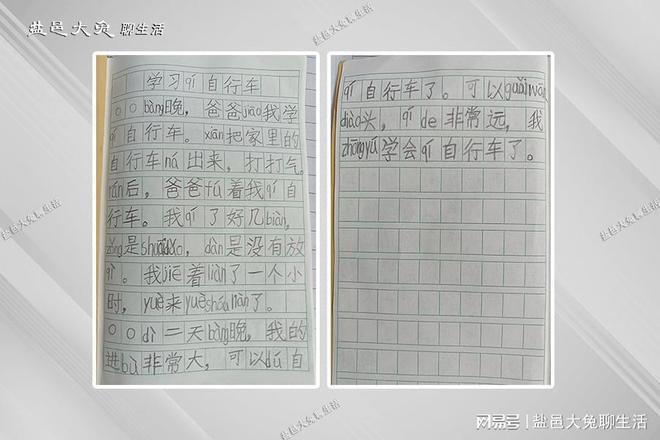 盐邑大兔 聊生活
盐邑大兔聊生活
学习qí自行车
○○bàng晚，爸爸jiāo我学
qí自行车。xiān把家里的
自行车ná出来，打打气。
rán后，爸爸fú着我qí自
行车。我qí了好几biàn，
zǒng是shuāi dǎo，dàn是没有放
qì。我jiē着liàn了一个小
时，yuè来yuè shóu liàn了。
○○dì二天bàng晚，我的
进bù非常大，可以dú自
qí自行车了。可以guǎi wān
diào头，qí de非常远，我
zhōng yú学会qí自行车了。
盐邑大兔聊生活
盐邑大兔聊生活
盐邑大兔聊生活
网易号 | 盐邑大兔聊生活